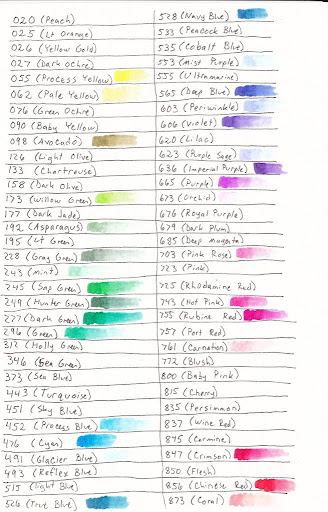 020 (Peach)
025 (Lt Orange)
026 (Yellow Gold)
027 (Dark Ochre)
055 (Process Yellow)
062 (Pale Yellow)
076 (Green Ochre)
090 (Baby Yellow)
098 (Avocado)
126 (Light Olive)
133 (Chartreuse)
158 (Dark Olive)
173 (Willow Green)
177 (Dark Jade)
192 (Asparagus)
195 (Lt Green)
228 (Gray Green)
243 (Mint)
245 (Sap Green)
249 (Hunter Green)
277 (Dark Green)
296 (Green)
312 (Holly Green)
346 (Sea Green)
373 (Sea Blue)
443 (Turquoise)
451 (Sky Blue)
452 (Process Blue)
476 (Cyan)
491 (Glacier Blue)
493 (Reflex Blue)
515 (light Blue)
526 (True Blue)
528 (Navy Blue)
533 (Peacock Blue)
535 (Cobalt Blue)
553 (Mist Purple)
555 (Ultramarine)
565 (Deep Blue)
603 (Periwinkle)
606 (Violet)
620 (Lilac)
623 (Purple Sage)
636 (Imperial Purple)
665 (Purple)
673 (Orchid)
676 (Royal Purple)
679 (Dark Plum)
685 (Deep Magenta)
703 (Pink Rose)
723 (Pink)
725 (Rhodamine Red)
743 (Hot Pink)
755 (Rubine Red)
757 (Port Red)
761 (Carnation)
772 (Blush)
800 (Baby Pink)
815 (Cherry)
835 (Persimmon)
837 (Wine Red)
845 (Carmine)
847 (Crimson)
850 (Flesh)
856 (Chinese Red)
873 (Coral)